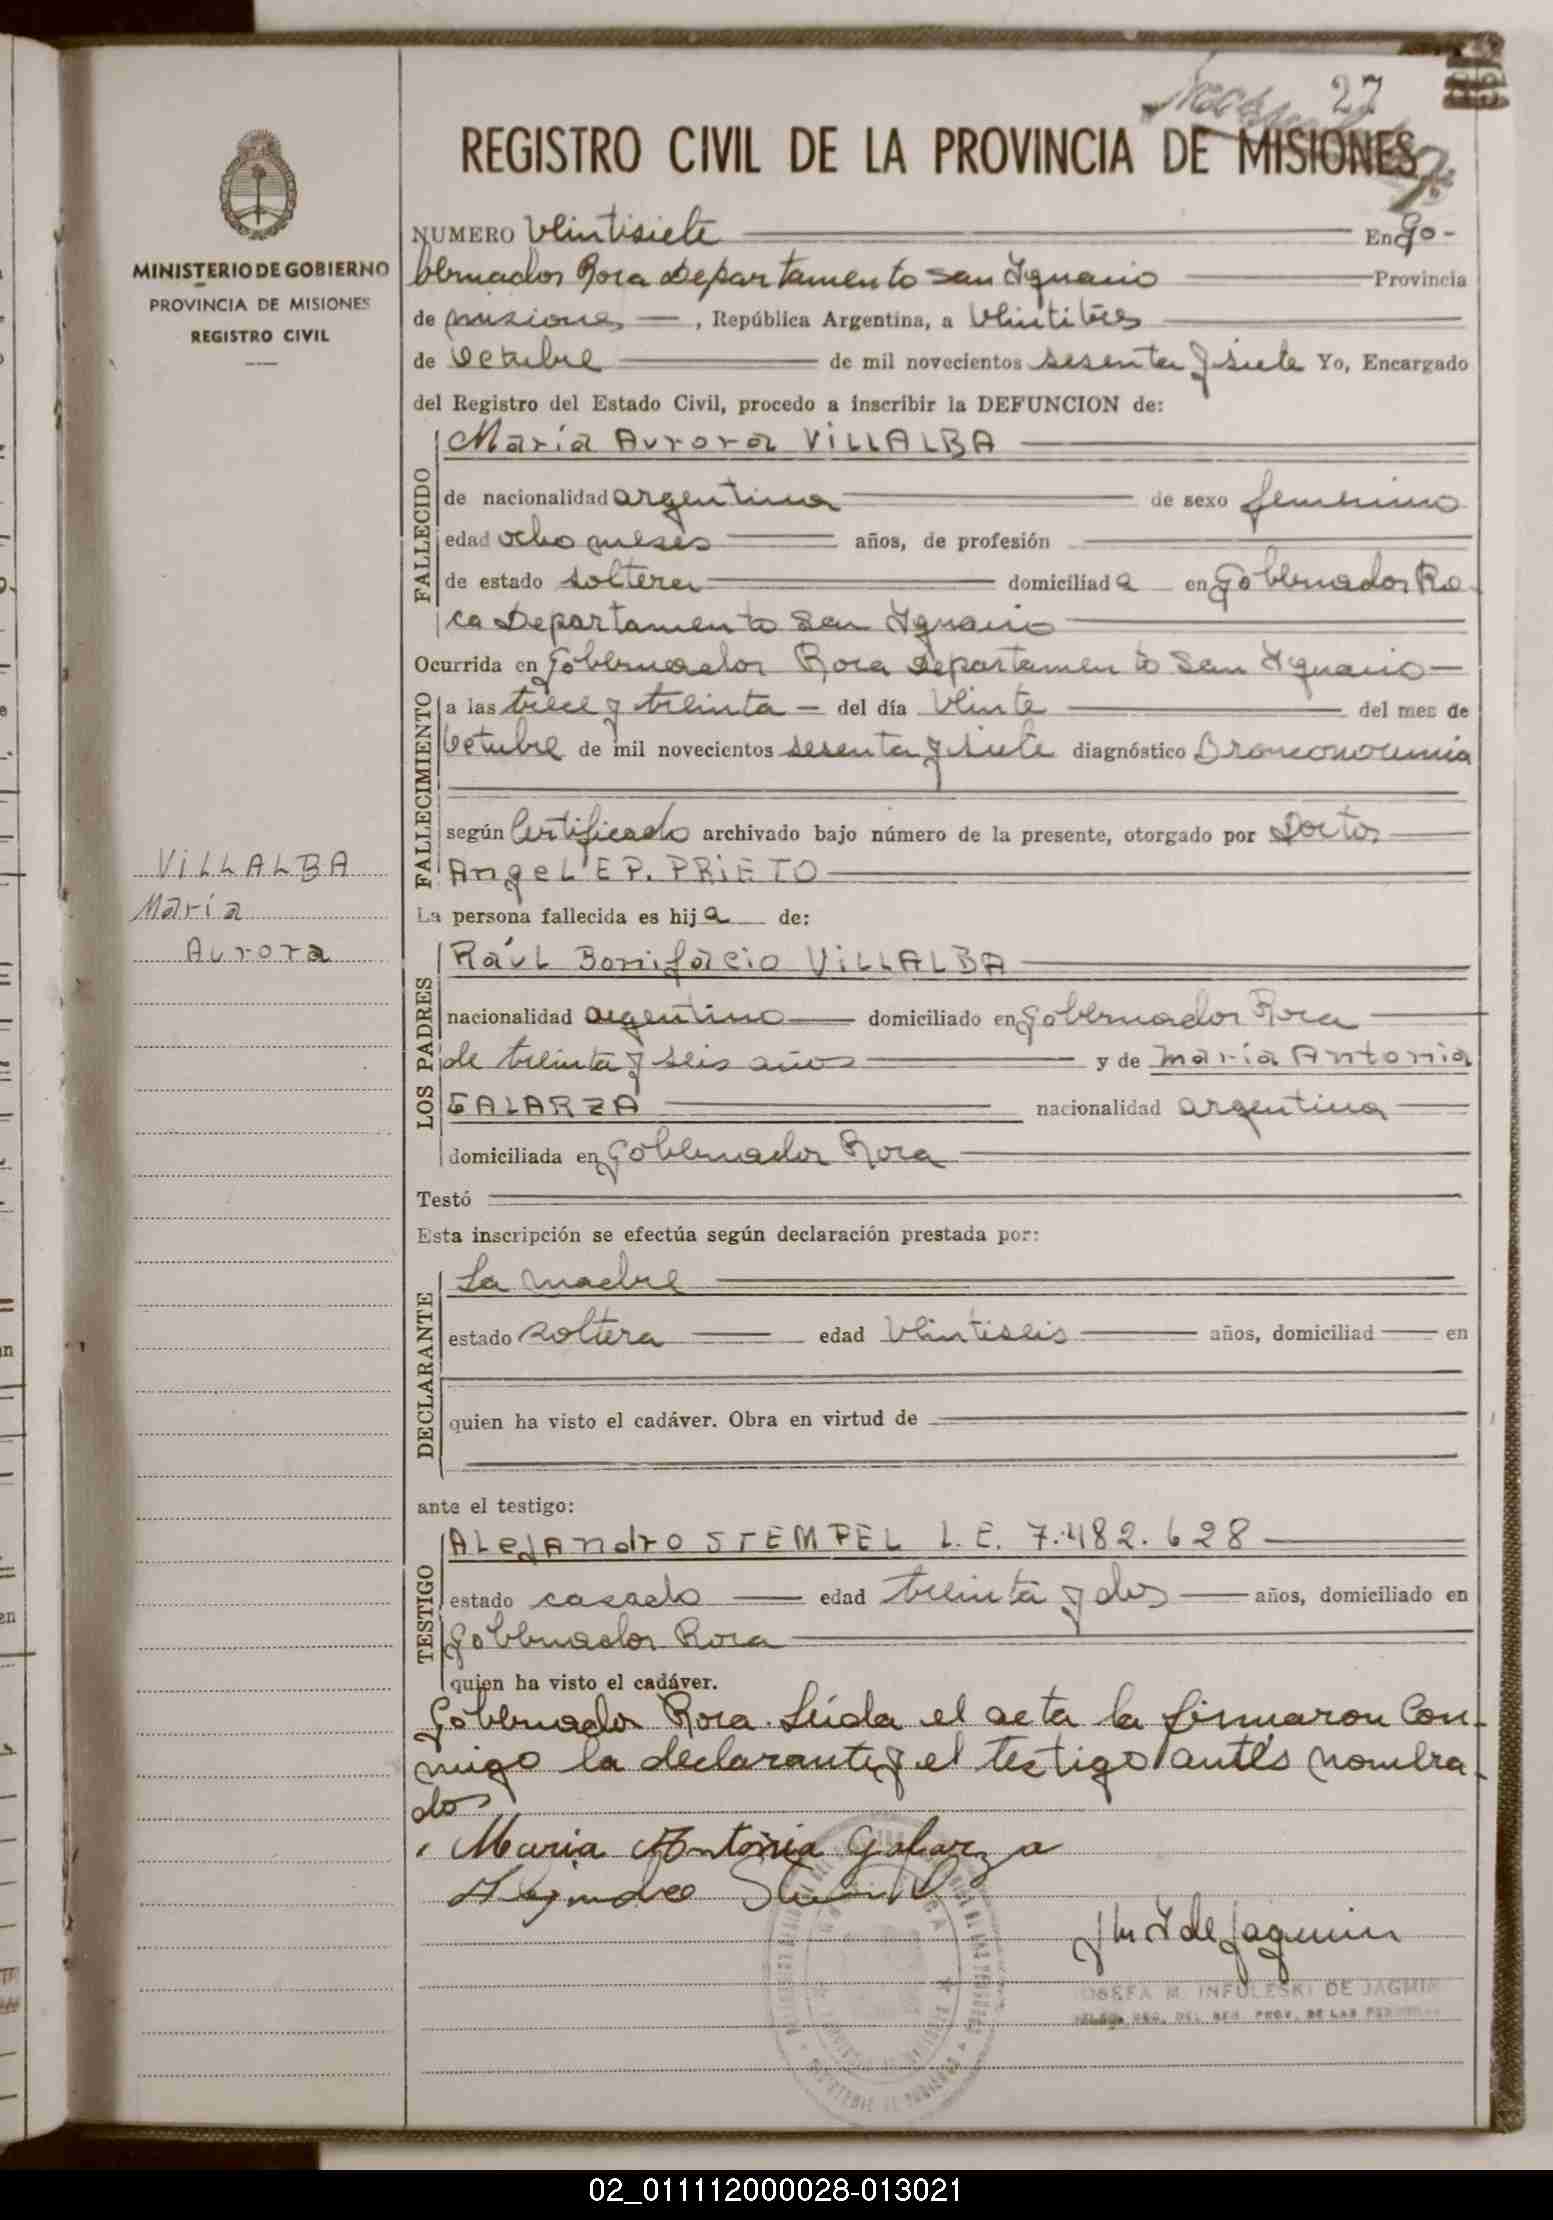 27
REGISTRO CIVIL DE LA PROVINCIA DE MISIONES
MINISTERIO DE GOBIERNO
PROVINCIA DE MISIONES
REGISTRO CIVIL
VILLALBA
María
Aurora
NUMERO Veintisiete En Go-
bernador Roca Departamento San Ignacio Provincia
de misiones, República Argentina, a Veintitrés
de Octubre de mil novecientos sesenta y siete Yo, Encargado
del Registro del Estado Civil, procedo a inscribir la DEFUNCION de:
FALLECIDO
María Aurora VILLALBA
de nacionalidad argentina de sexo femenino
edad ocho meses años, de profesión
de estado soltera domiciliada en Gobernador Ro-
ca Departamento San Ignacio
Ocurrida en Gobernador Roca Departamento San Ignacio
FALLECIMIENTO
a las trece y treinta del día Veinte del mes de
Octubre de mil novecientos sesenta y siete diagnóstico
según Certificado archivado bajo número de la presente, otorgado por Doctor
Angel E P. PRIETO
La persona fallecida es hija de:
LOS PADRES
Raúl Bonifacio VILLALBA
nacionalidad argentino domiciliado en Gobernador Roca
de treinta y seis años y de María Antonia
GALARZA nacionalidad argentina
domiciliada en Gobernador Roca
Testó
Esta inscripción se efectúa según declaración prestada por:
DECLARANTE
La madre
estado soltera edad Veintiseis años, domiciliad en
quien ha visto el cadáver. Obra en virtud de
ante el testigo:
TESTIGO
ALEJANdro STEMPEL L.E. 7.482.628
estado casado edad treinta y dos años, domiciliado en
Gobernador Roca
quien ha visto el cadáver.
Gobernador Roca. Leída el acta la firmaron Con-
migo la declarante y el testigo antes nombra-
dos
Maria Antonia Galarza
JOSEFA M. INFULESKI DE JAGMIN
02_011112000028-013021